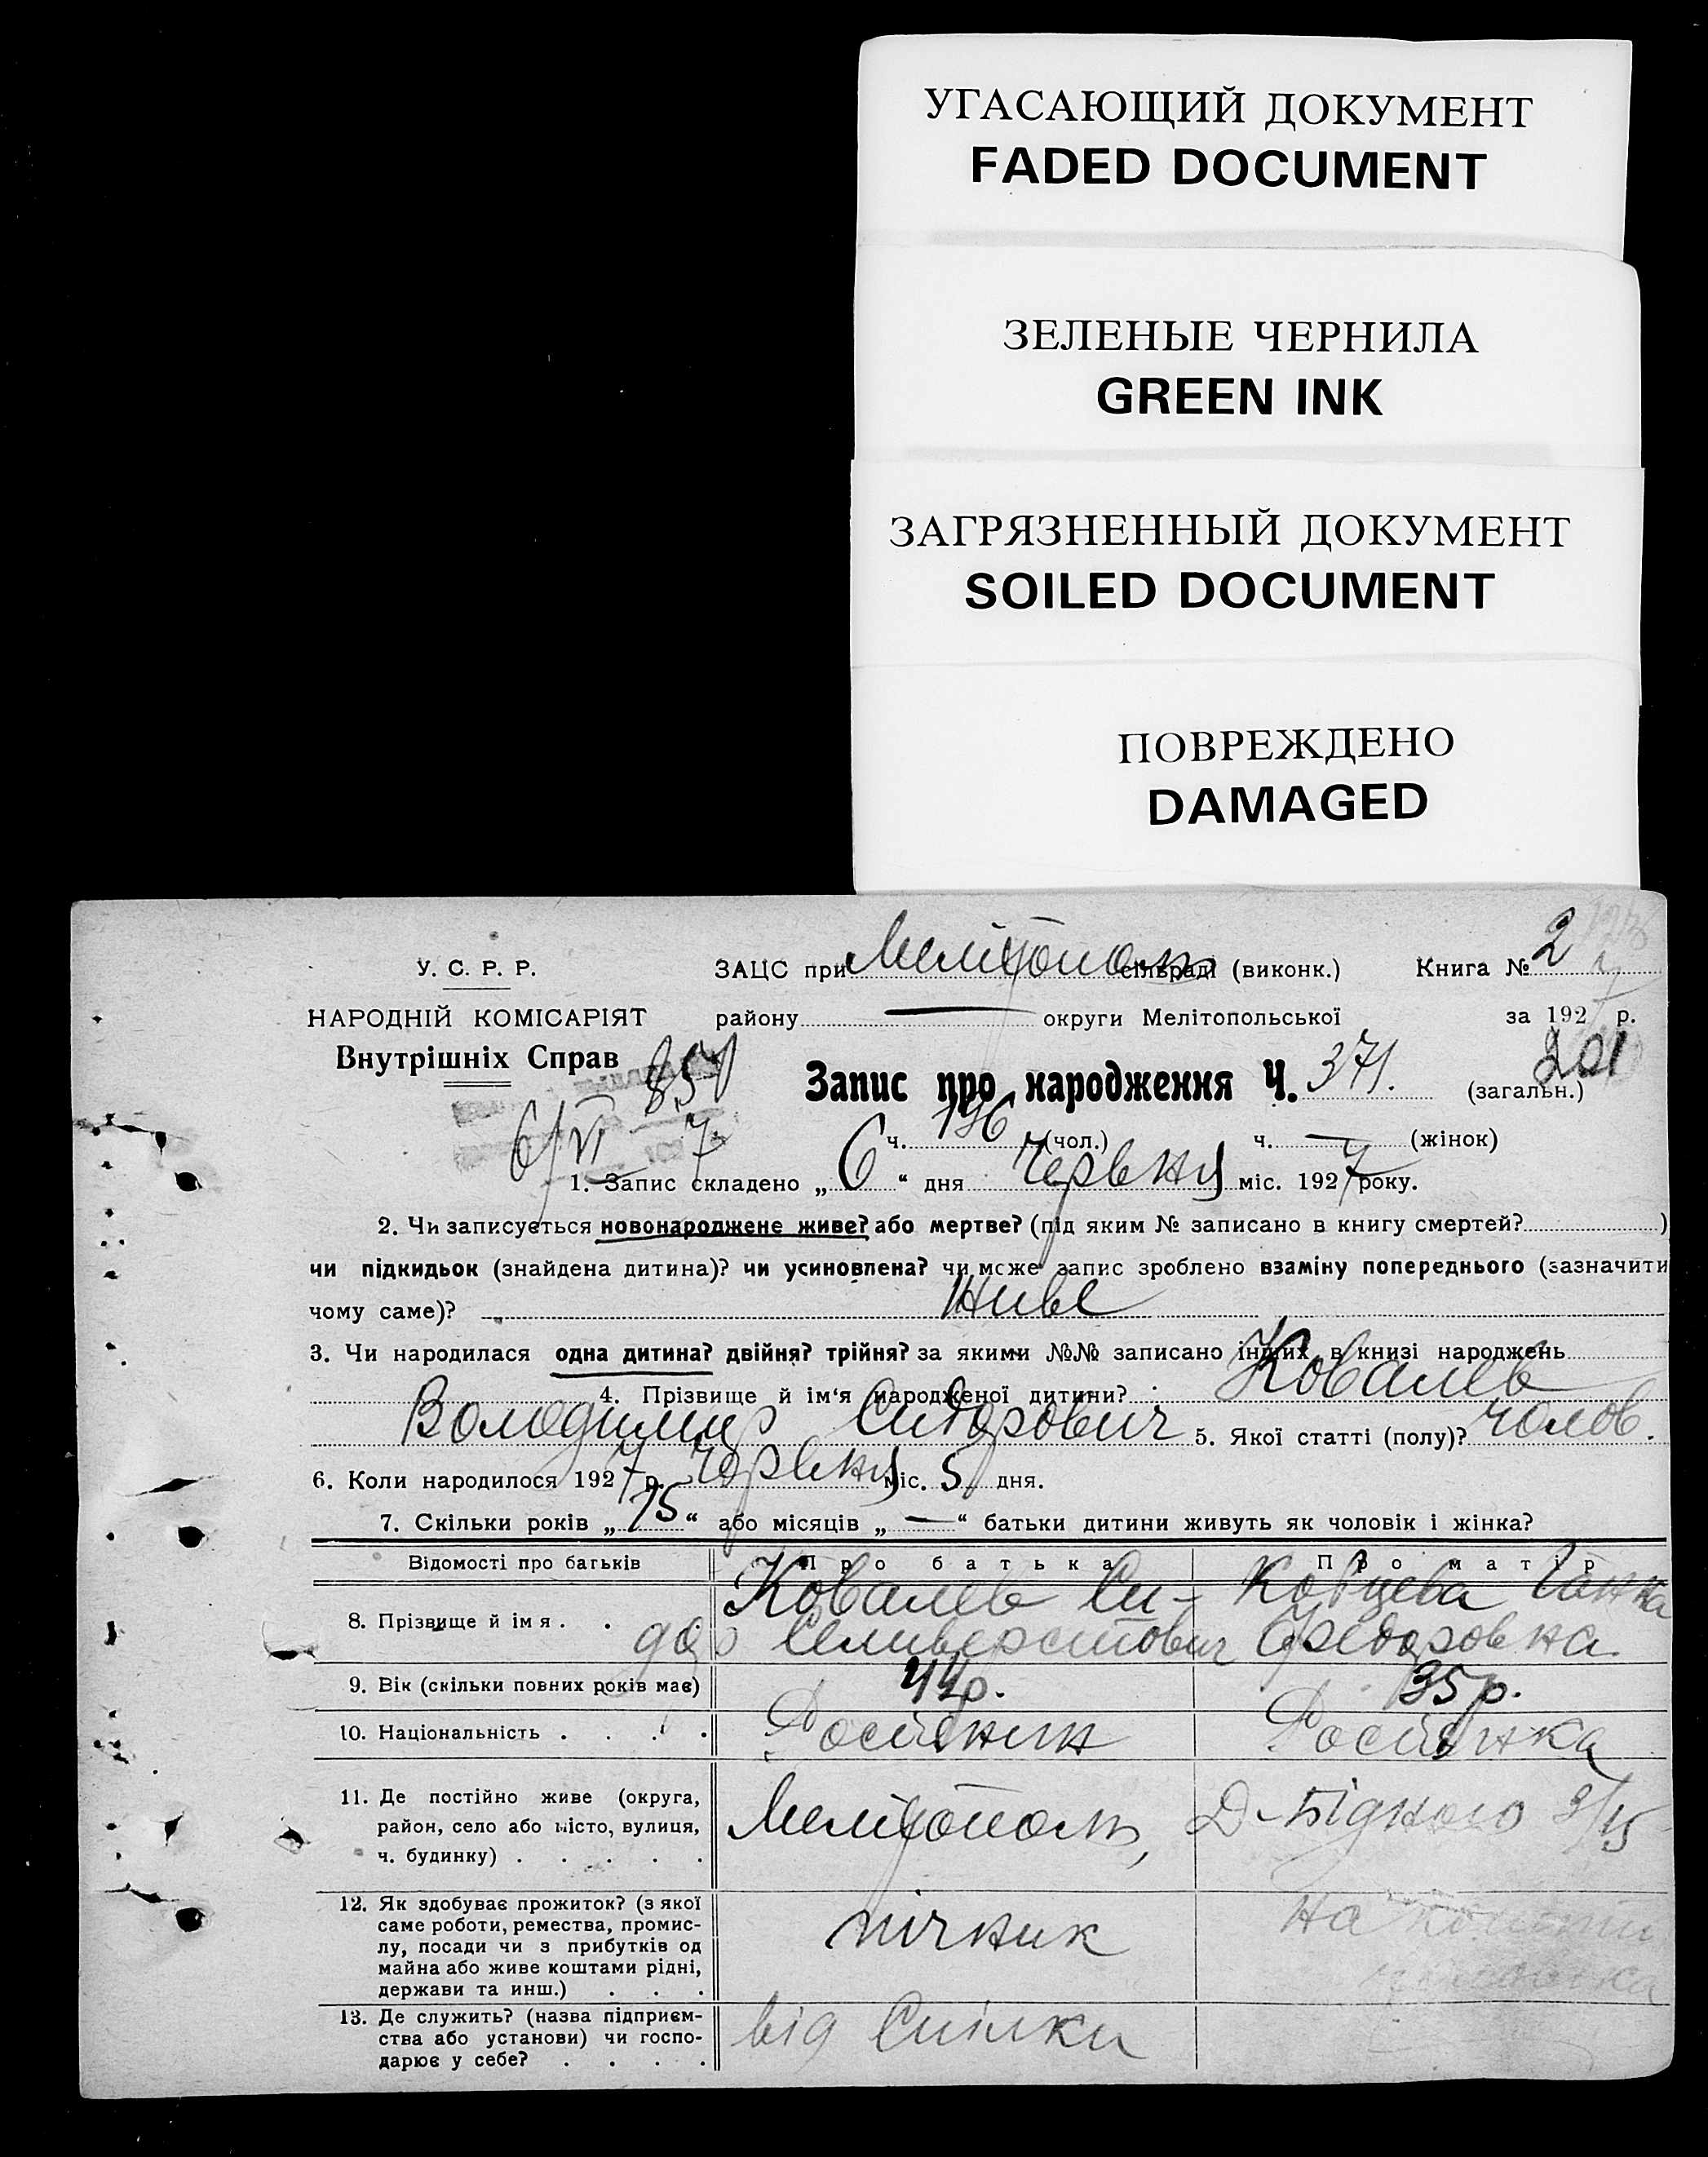 УГАСАЮЩИЙ ДОКУМЕНТ
FADED DOCUMENT
ЗЕЛЕНЫЕ ЧЕРНИЛА
GREEN INK
ЗАГРЯЗНЕННЫЙ ДОКУМЕНТ
SOILED DOCUMENT
ПОВРЕЖДЕНО
DAMAGED
У. С. Р. Р.
ЗАЦС при Мелітополь сільраді (виконк.) Книга № 2
НАРОДНІЙ КОМІСАРІЯТ
району — округи Мелітопольської за 1927 р.
Внутрішніх Справ
Запис про народження Ч. 371. 201 (загальн.)
6/VI 7
ч. 196 (чол.) ч. — (жінок)
1. Запис складено „ 6 “ дня Червня міс. 1927 року.
2. Чи записується новонароджене живе? або мертве? (під яким № записано в книгу смертей? )
чи підкидьок (знайдена дитина)? чи усиновлена? чи може запис зроблено взаміну попереднього (зазначити
чому саме)? Живе
3. Чи народилася одна дитина? двійня? трійня? за якими №№ записано інших в книзі народжень
4. Прізвище й ім‘я народженої дитини? Ковалев
Володимир Сидорович 5. Якої статті (полу)? чолов.
6. Коли народилося 1927 р. Червня міс. 5 дня.
7. Скільки років „ 15 “ або місяців „ — “ батьки дитини живуть як чоловік і жінка?
Відомості про батьків Про батька Про матір
8. Прізвище й ім я . . Ковалев Си-
дор Селиверстович
Ганна
Федоровна
9. Вік (скільки повних років має) 44р. 35 р.
10. Національність . . . . Росіянин Росіянка
11. Де постійно живе (округа,
район, село або місто, вулиця,
ч. будинку) . . . . .
Мелітополь, Д-Бідного 9/15
12. Як здобуває прожиток? (з якої
саме роботи, ремества, промис-
лу, посади чи з прибутків од
майна або живе коштами рідні,
держави та инш.) . . .
пічник
На
13. Де служить? (назва підприєм-
ства або установи) чи госпо-
дарює у себе? . . . .
від Спілки